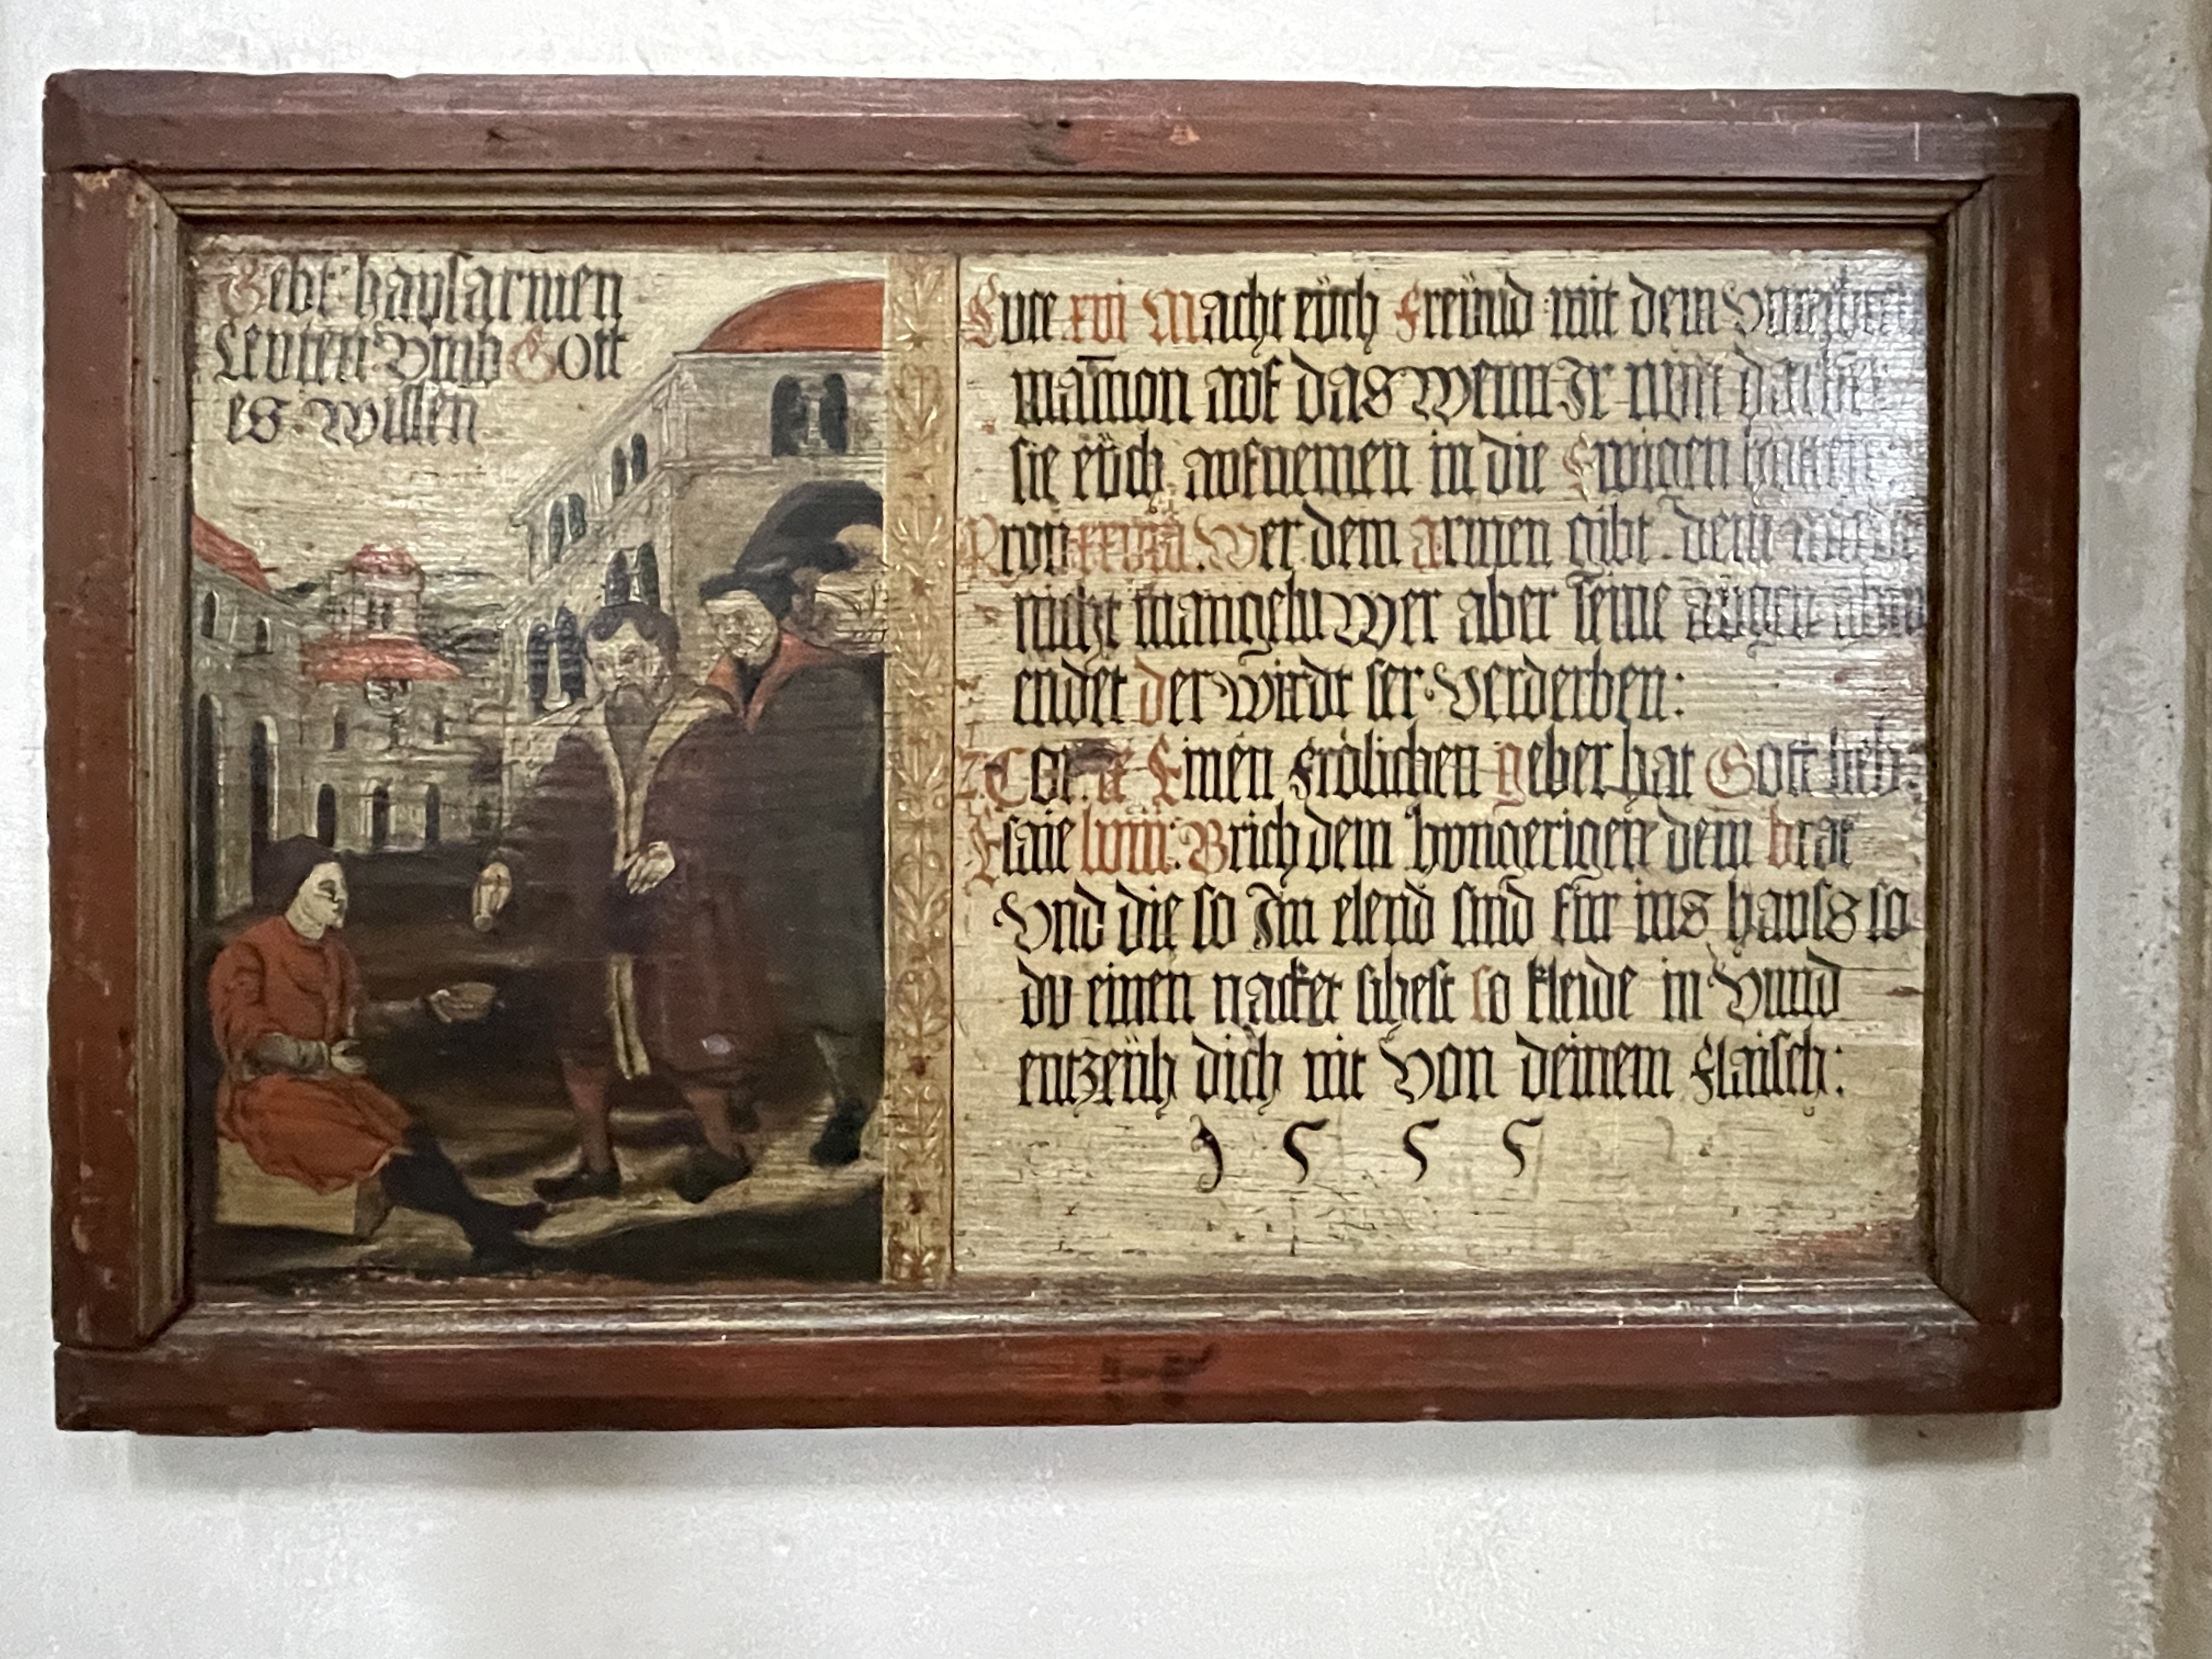 Gebt hausarmen
Leuten Vmb Gott
es Willen
Luce xvi Macht eüch Freünd mit dem
mam̄on auf das Wenn Ir nun
sie eüch aufnemen in die Ewigen
Wer dem armen gibt dem
nicht mangeln Wer aber seine augen
endet der Wirdt ser Verderben:
2 Cor Einen Frölichen geber hat Gott lieb:
Esaie lviii: Brich dem hungerigen dein brat
Vnd die so Im elend sind für ins hauss so
du einen nacket sihest so kleide in Vnnd
entzeüh dich nit Von deinem Flaisch:
1 5 5 5